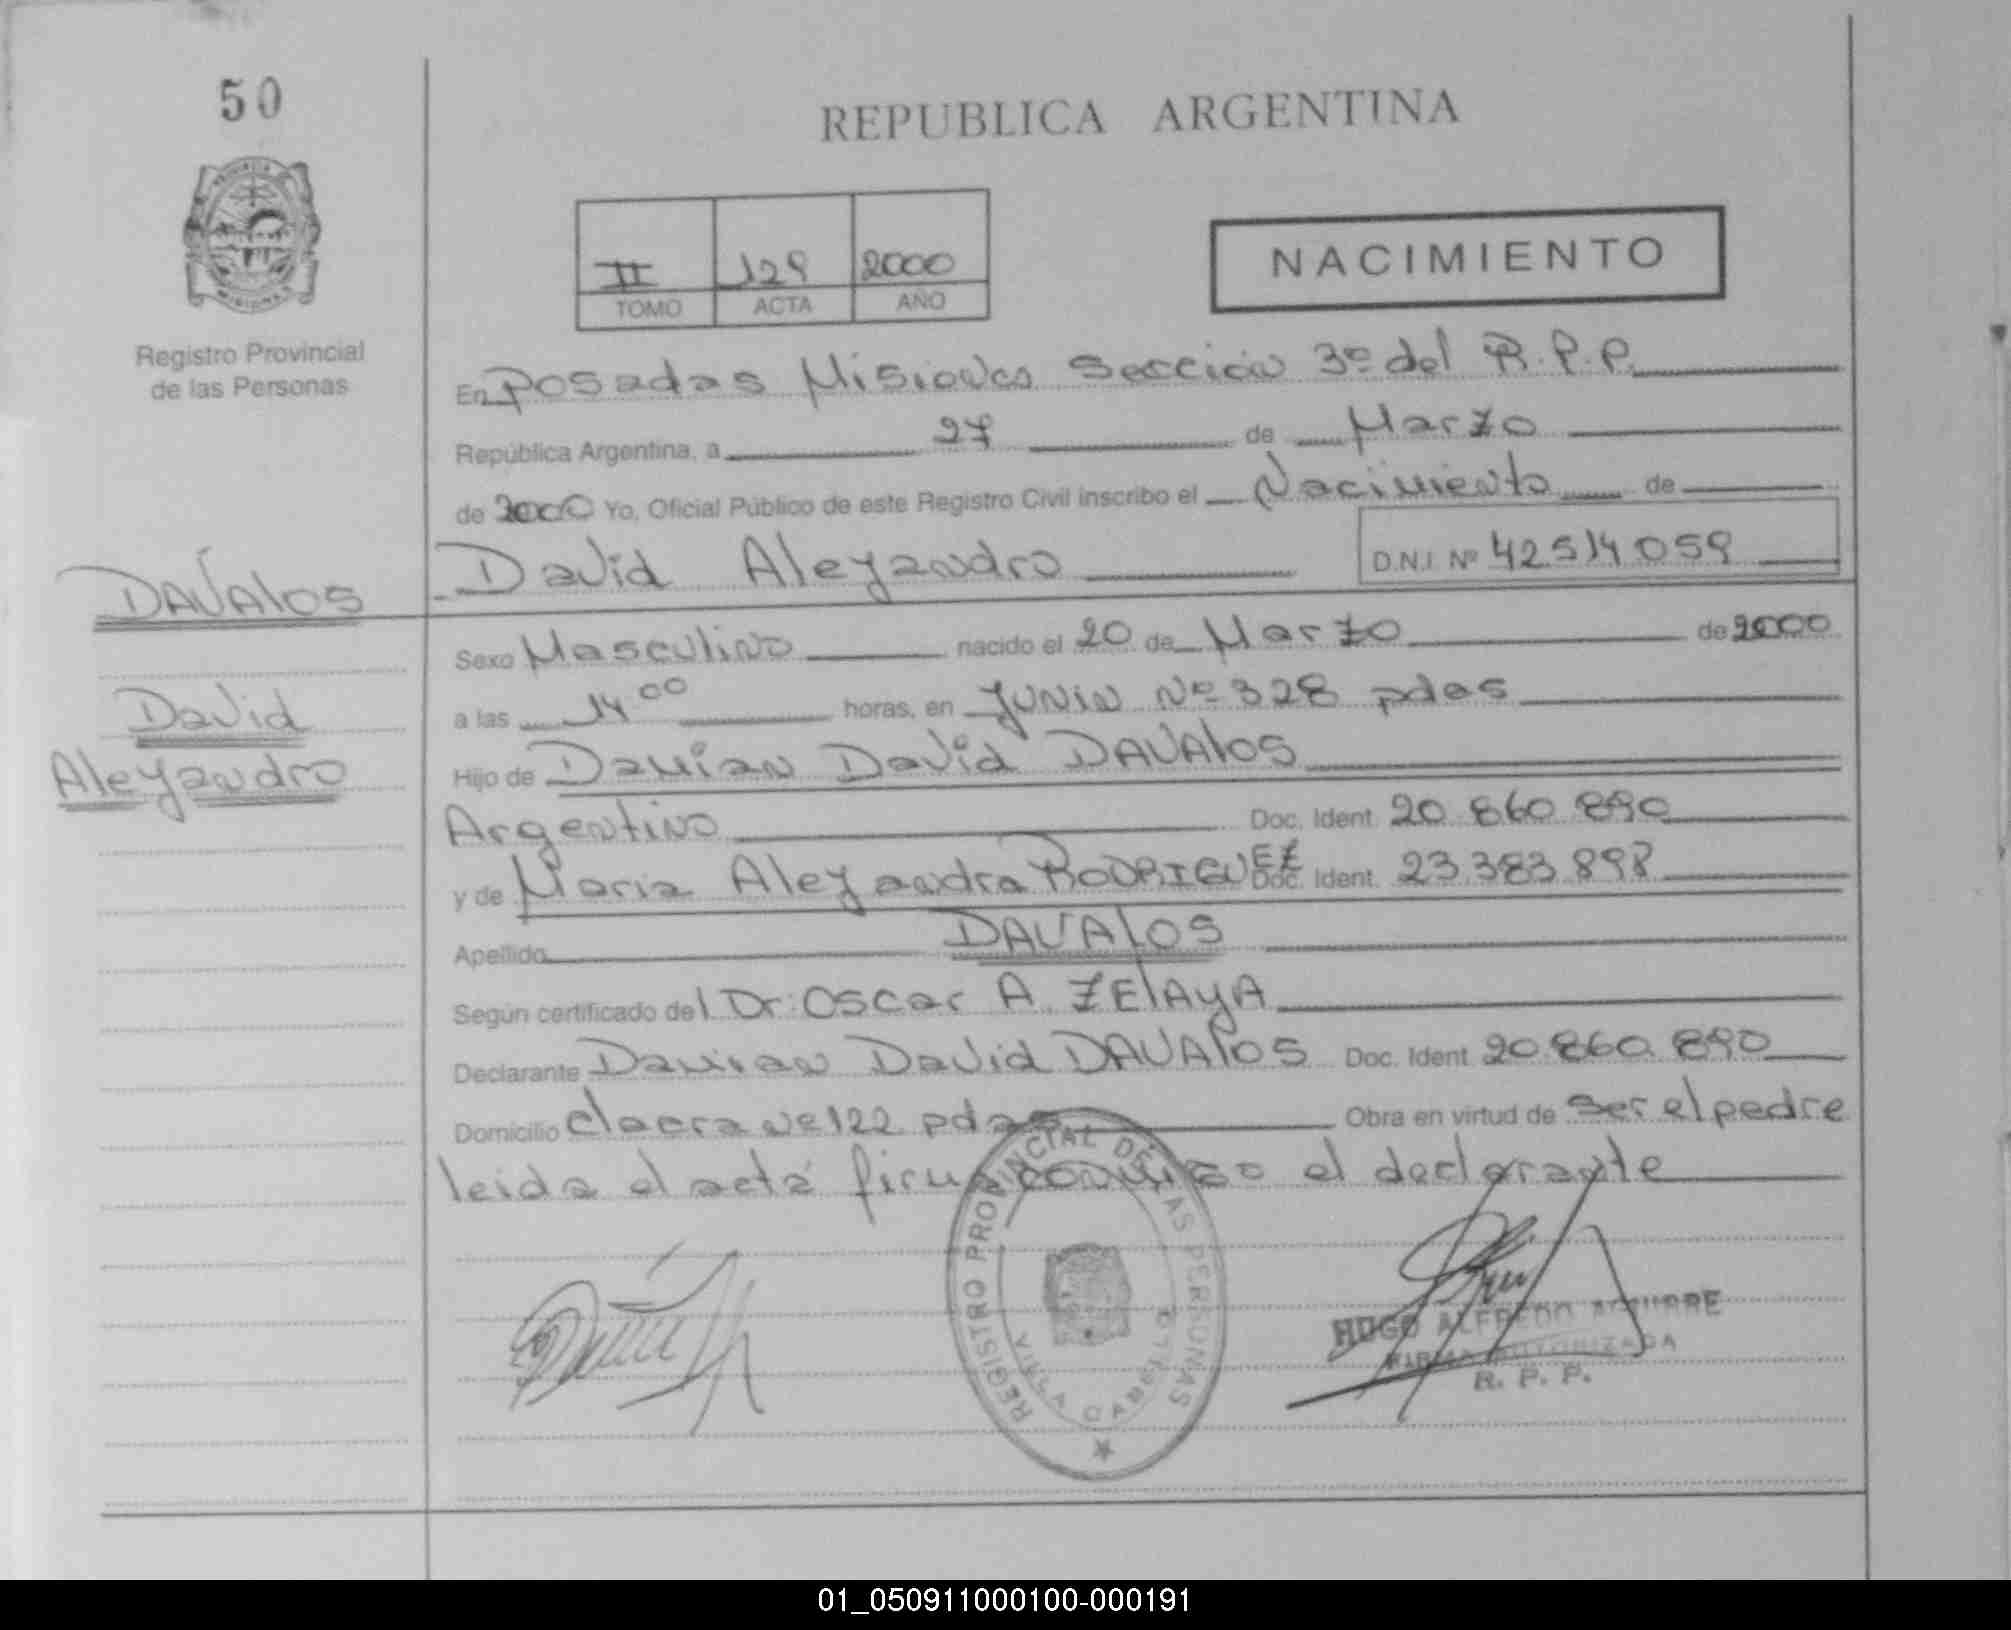 50
REPUBLICA ARGENTINA
II 129 2000
TOMO ACTA AÑO
NACIMIENTO
Registro Provincial
de las Personas
En Posadas Misiones Sección 3º del R.P.P.
República Argentina, a 27 de Marzo
de 2000 Yo, Oficial Público de este Registro Civil inscribo el Nacimiento de
David Aleyandro D.N.I. Nº 42514059
DAVAlos
David
Aleyandro
Sexo Masculino nacido el 20 de Marzo de 2000
a las 14 00 horas, en JUNIN Nº 328 pdas
Hijo de Damian David DAVAlos
Argentino Doc. Ident. 20.860.890
y de Maria Aleyandra RODRIGUEZ Doc. Ident. 23.383.898
Apellido DAVAlos
Según certificado del Dr: Oscar A. ZElAyA
Declarante Damian David DAVAlos Doc. Ident. 20.860.890
Domicilio chacra Nº 122 pdas Obra en virtud de ser el padre
leida el acta firma conmigo el declarante
REGISTRO PROVINCIAL DE LAS PERSONAS
VILLA CABELLO
HUGO ALFREDO AGUIRRE
FIRMA AUTORIZADA
R. P. P.
01_050911000100-000191